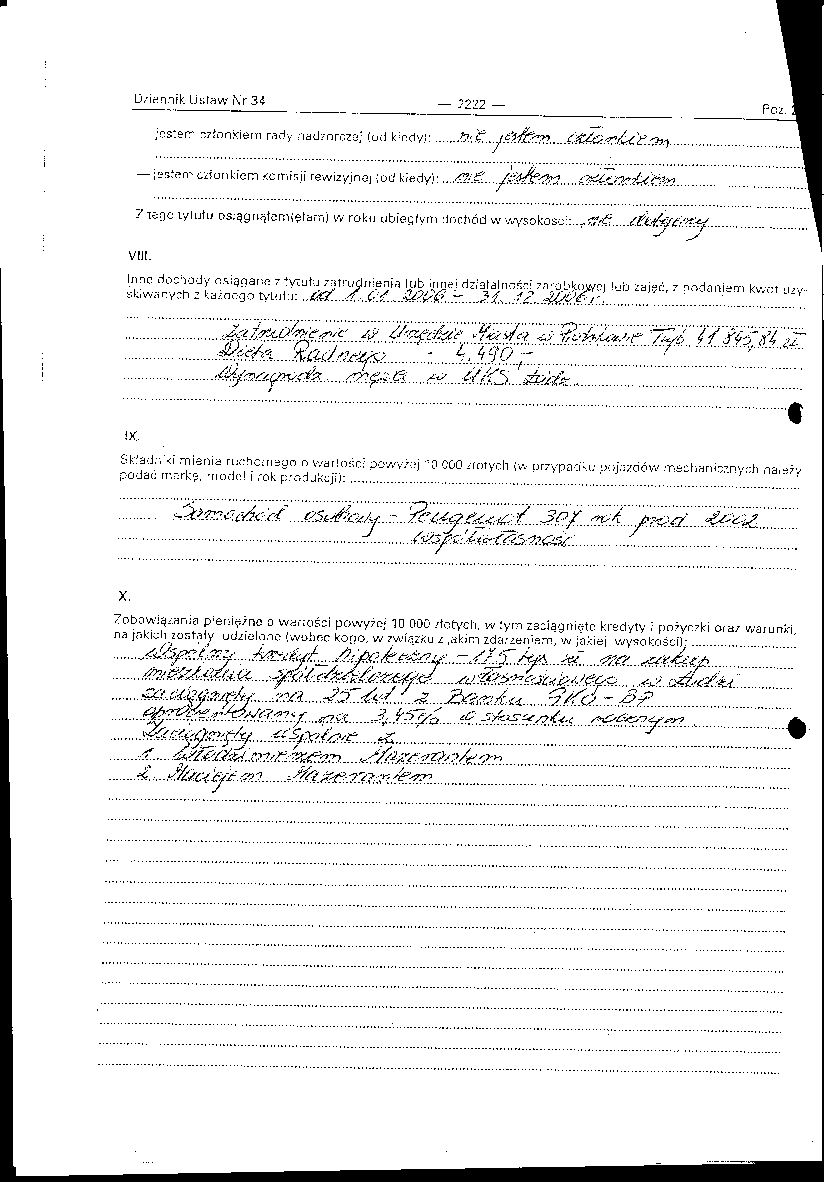 Dziennik Ustaw Nr 34 — 2222 — Poz.
jestem członkiem rady nadzorczej (od kiedy): nie jestem członkiem
— jestem członkiem komisji rewizyjnej (od kiedy): nie jestem członkiem
Z tego tytułu osiągnąłem(ęłam) w roku ubiegłym dochód w wysokości: nie dotyczy
VIII.
Inne dochody osiągane z tytułu zatrudnienia lub innej działalności zarobkowej lub zajęć, z podaniem kwot uzy-
skiwanych z każdego tytułu: od 1 01 2006 - 31. 12 2006 r.
Zatrudnienie w Urzędzie Miasta w Piotrkowie Tryb 41 845,84 zł
Dieta Radnego - 4.490,-
męża w UKS Łódź
IX.
Składniki mienia ruchomego o wartości powyżej 10 000 złotych (w przypadku pojazdów mechanicznych należy
podać markę, model i rok produkcji):
Samochód osobowy - Peugeot 307 rok prod 2002
współwłasność
X.
Zobowiązania pieniężne o wartości powyżej 10 000 złotych, w tym zaciągnięte kredyty i pożyczki oraz warunki,
na jakich zostały udzielone (wobec kogo, w związku z jakim zdarzeniem, w jakiej wysokości):
Wspólny kredyt hipoteczny - 175 tys zł na zakup
mieszkania spółdzielczego własnościowego w Łodzi
zaciągnięty na 25 lat z Banku PKO - BP
oprocentowany na 3,45% w stosunku rocznym
Zaciągnięty wspólnie z
1. Włodzimierzem Mazerantem
2. Maciejem Mazerantem